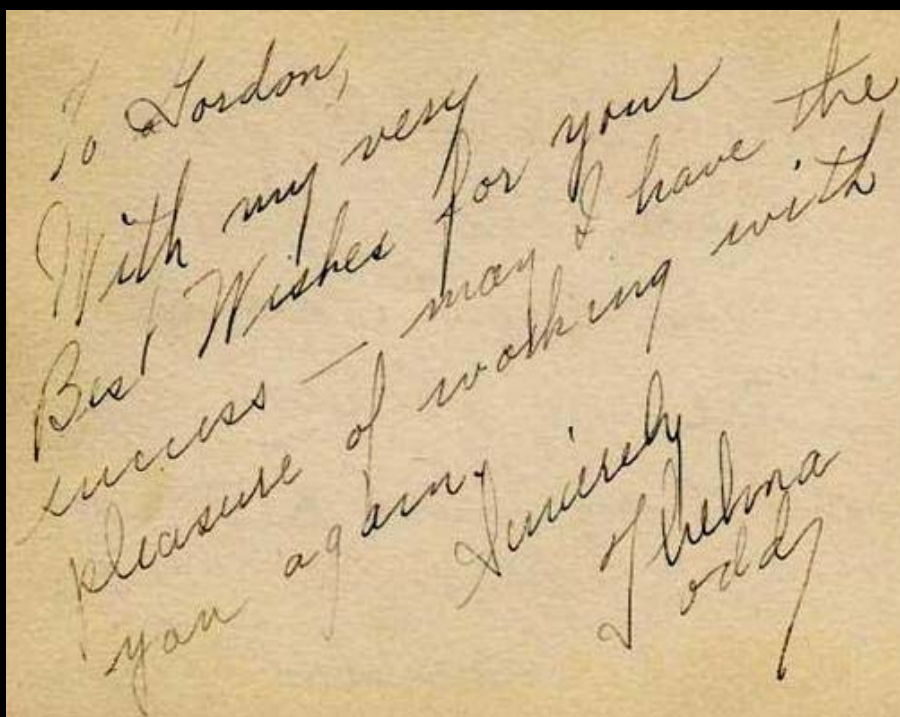 To Gordon,
With my very
Best Wishes for your
success — may I have the
pleasure of working with
you again.
Sincerely
Thelma
Todd